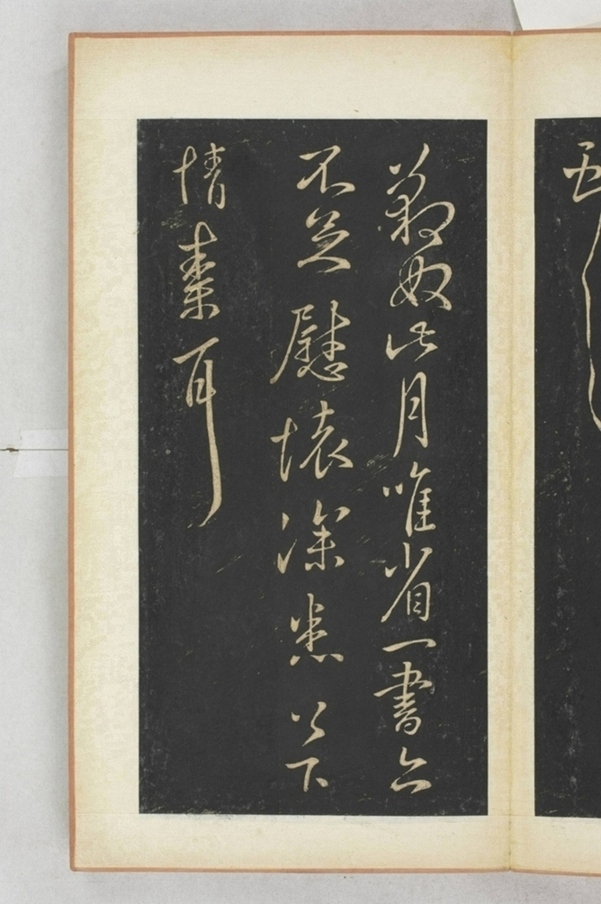 奴此月唯省一書亦
不足慰懷深悉以下
情素耳